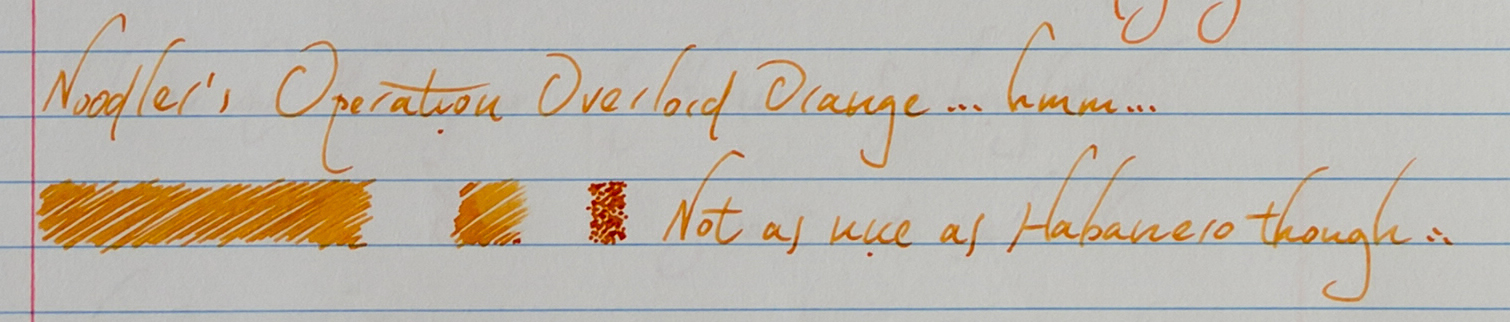 Noodler's Operation Overlord Orange... hmm...
Not as nice as Habanero though...